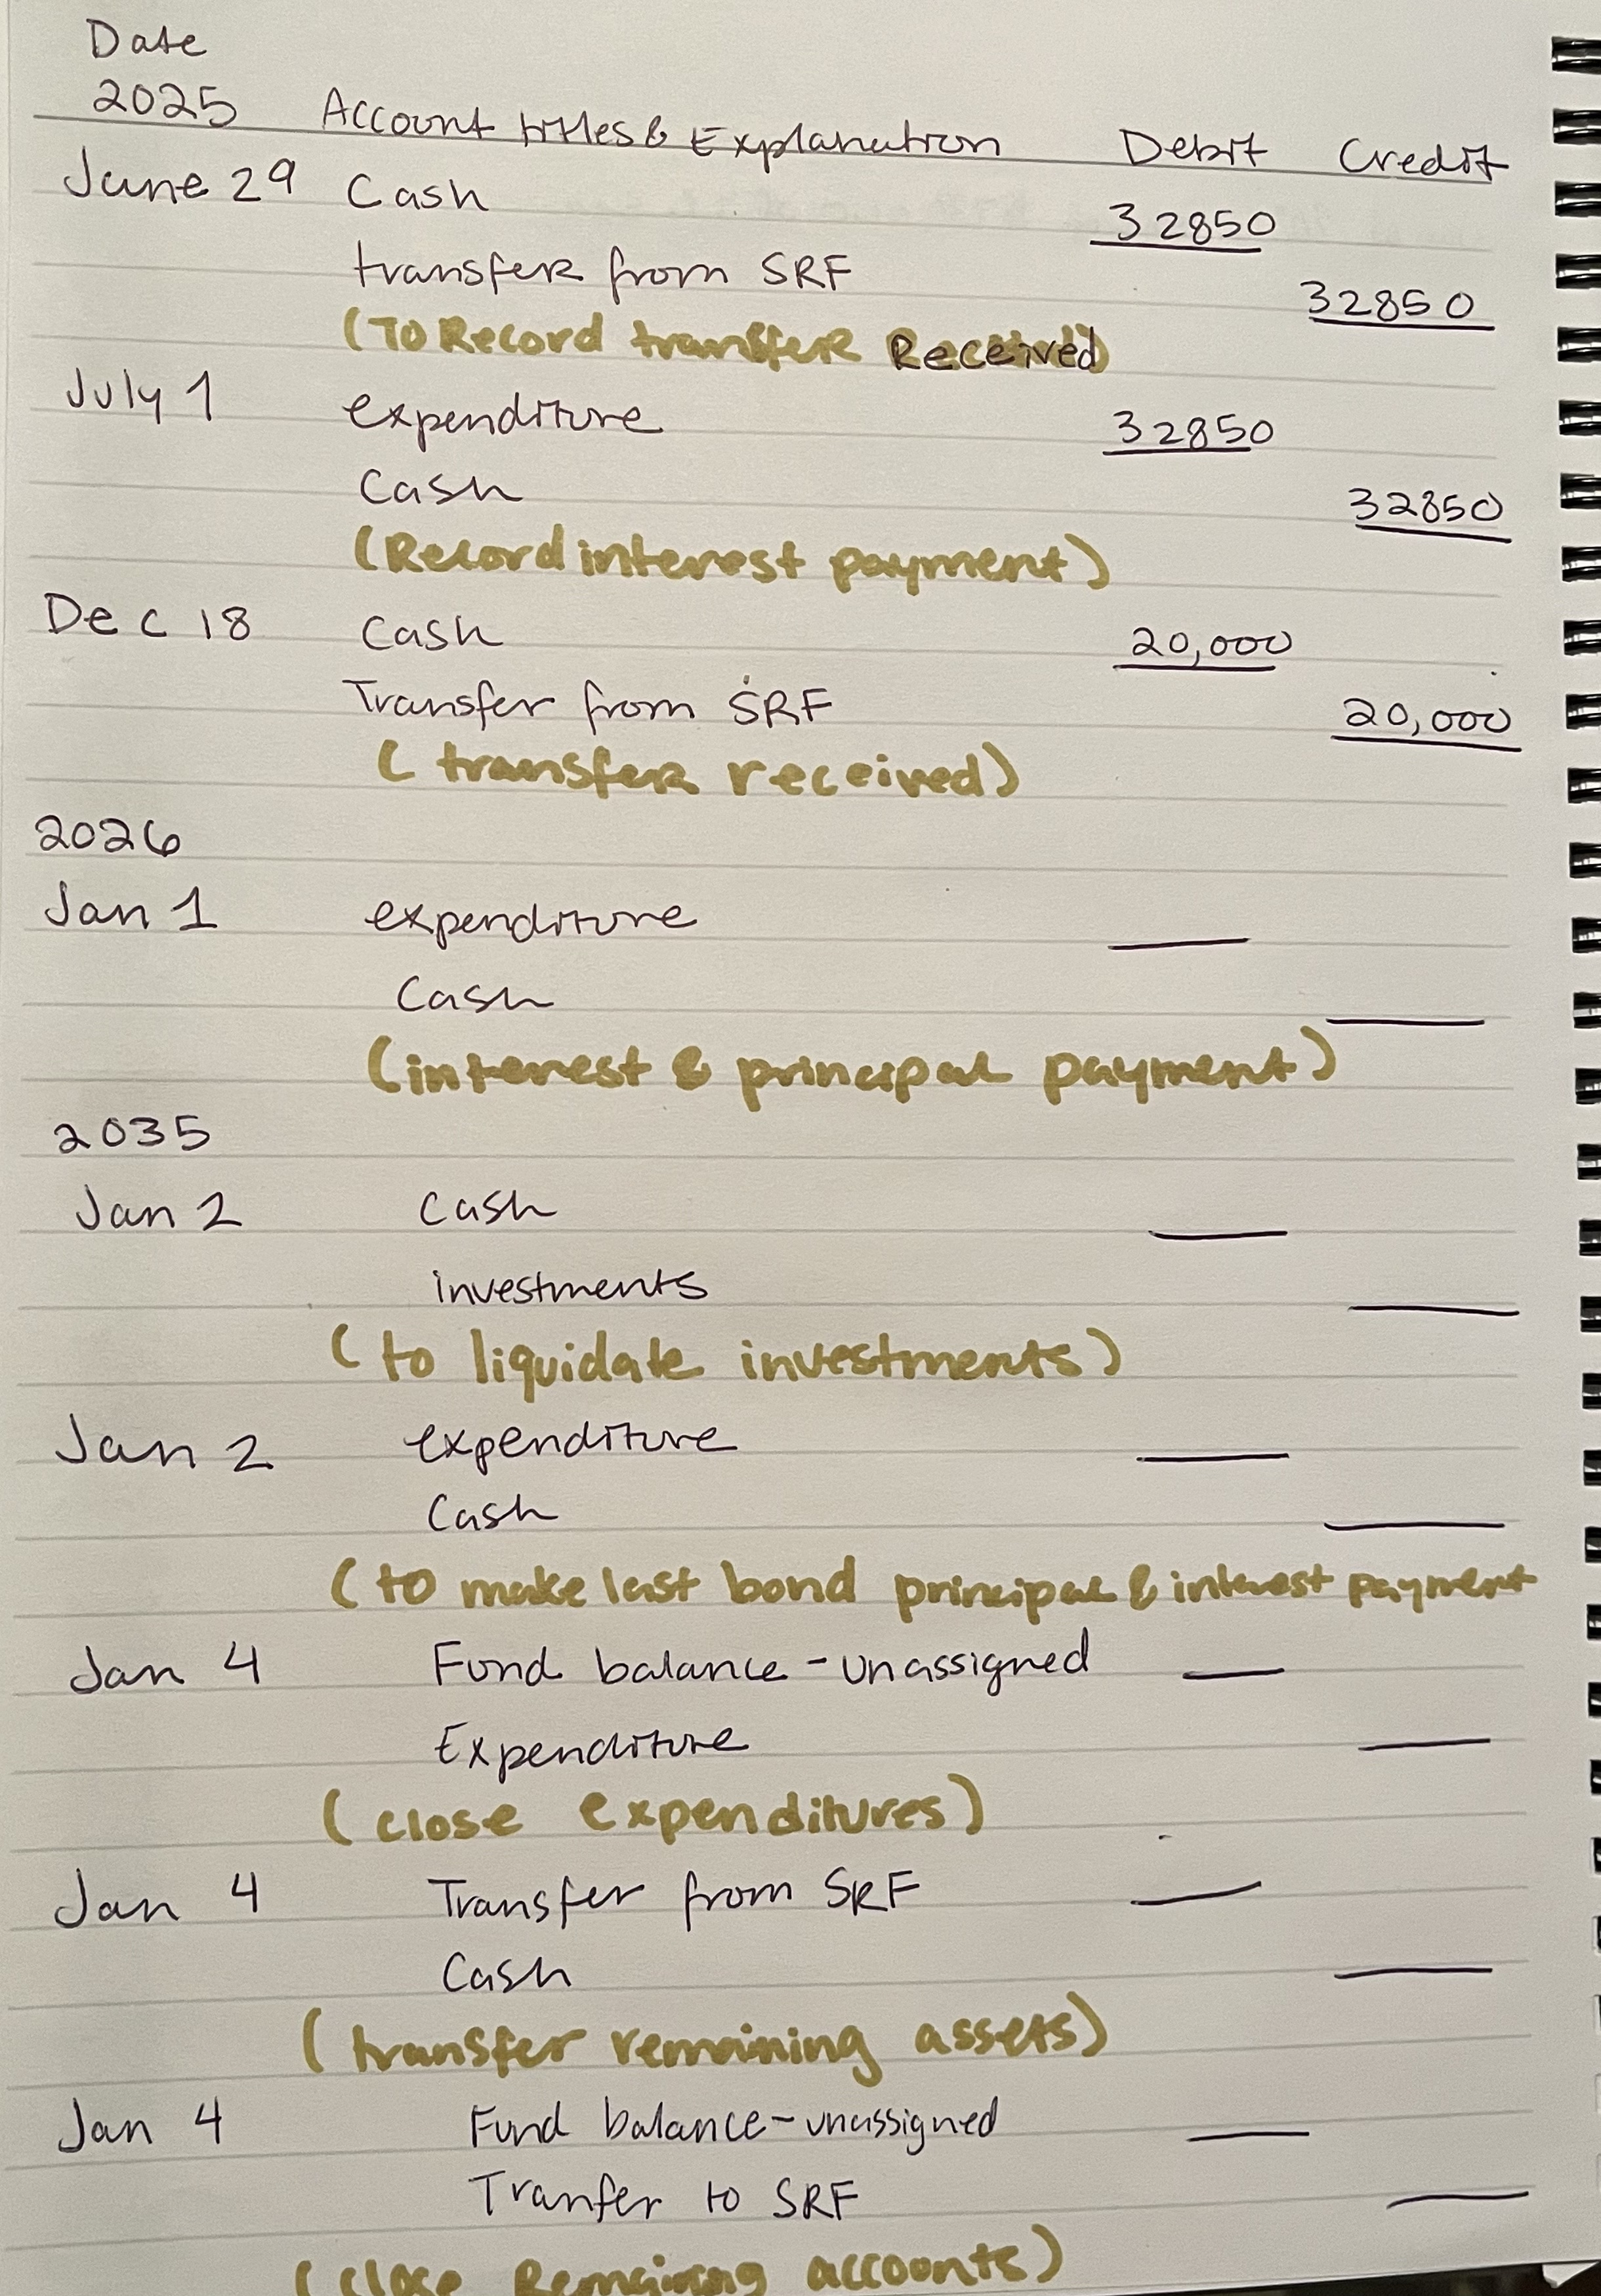 Date
2025 Account titles & Explanation Debit Credit
June 29 Cash 32850
transfer from SRF 32850
(To Record transfer Received)
July 1 expenditure 32850
Cash 32850
(Record interest payment)
Dec 18 Cash 20,000
Transfer from SRF 20,000
(transfer received)
2026
Jan 1 expenditure
Cash
(interest & principal payment)
2035
Jan 2 Cash
investments
(to liquidate investments)
Jan 2 expenditure
Cash
(to make last bond principal & interest payment
Jan 4 Fund balance - unassigned
Expenditure
(close expenditures)
Jan 4 Transfer from SRF
Cash
(transfer remaining assets)
Jan 4 Fund balance - unassigned
Tranfer to SRF
(close Remaining accounts)